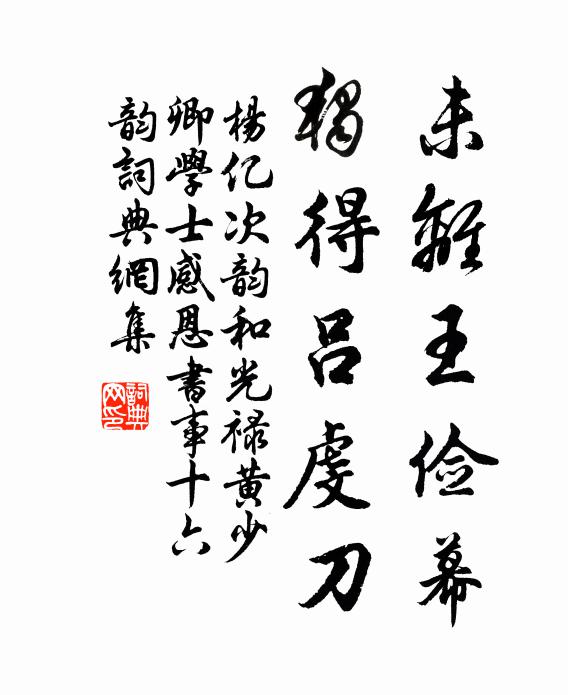 未離王俭幕
獨得吕虔刀
楊亿次韵和光禄黄少
卿學士感恩書事十六
韵詞典網集
詞典网印